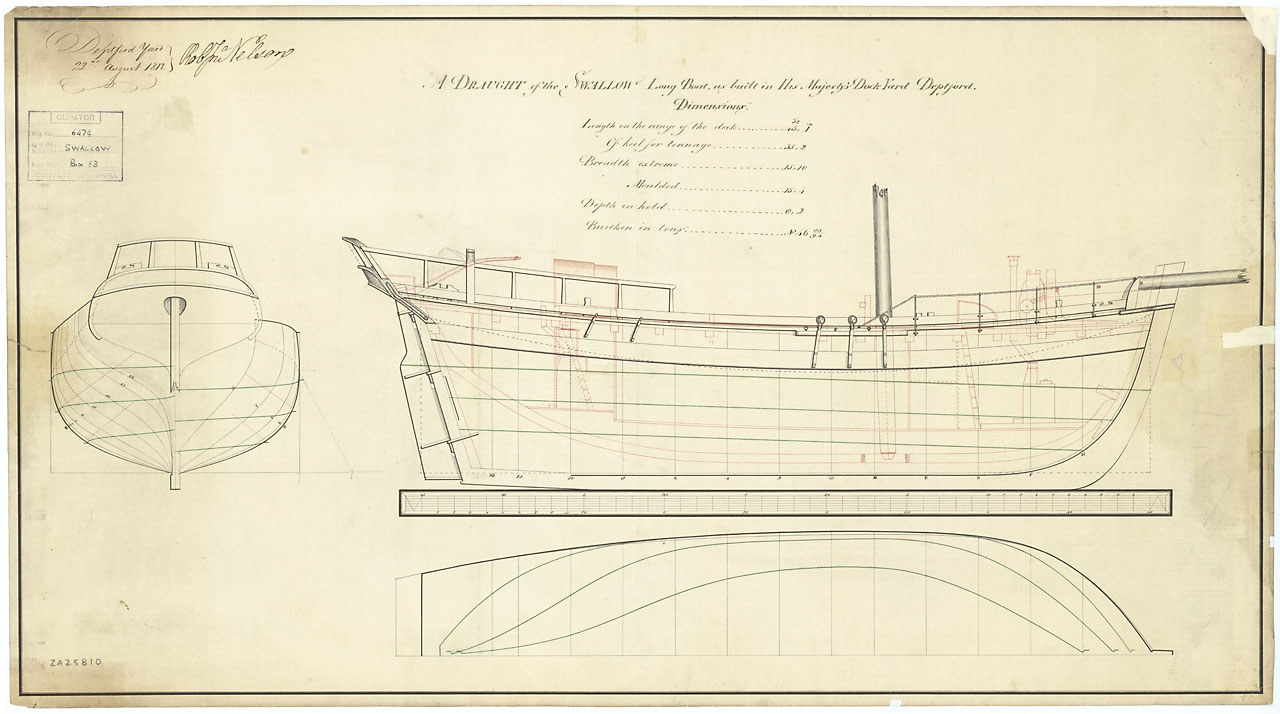 Deptford Yard
22nd August 1812
Robt Nelson
A DRAUGHT of the SWALLOW Long Boat, as built in His Majesty's Dock Yard Deptford.
Dimensions.
Length on the range of the deck
Of keel for tonnage 35.2
Breadth extreme 15.10
Moulded 15.4
Depth in hold 8.2
Burthen in tons No. 46
CURATOR
6474
SWALLOW
Box 63
ZA25810